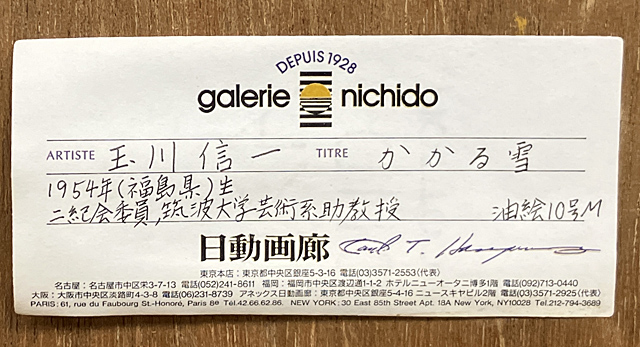 DEPUIS 1928
galerie nichido
ARTISTE 玉川信一 TITRE かかる雪
1954年(福島県)生
二紀会委員,筑波大学芸術系助教授 油絵10号M
日動画廊
東京本店:東京都中央区銀座5-3-16 電話(03)3571-2553(代表)
名古屋:名古屋市中区栄3-7-13 電話(052)241-8611 福岡:福岡市中央区渡辺通1-1-2 ホテルニューオータニ博多1階 電話(092)713-0440
大阪:大阪市中央区淡路町4-3-8 電話(06)231-8739 アネックス日動画廊:東京都中央区銀座5-4-16 ニュースキヤビル2階 電話(03)3571-2925(代表)
PARIS: 61, rue du Faubourg St.-Honoré, Paris 8e Tél.42.66.62.86. NEW YORK: 30 East 85th Street Apt. 18A New York, NY10028 Tel.212-794-3689